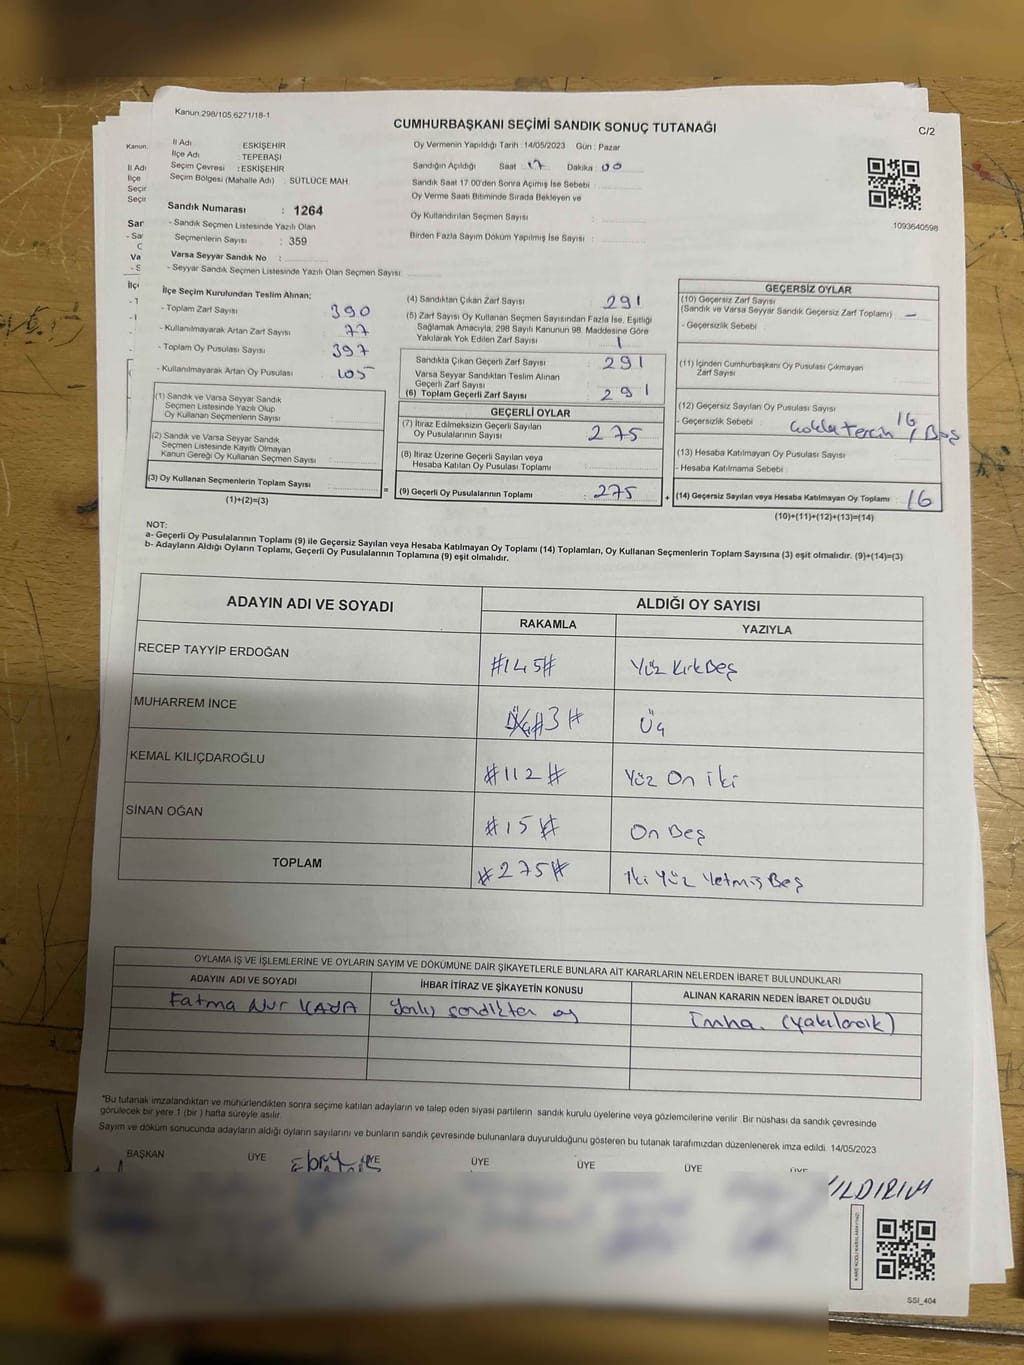 Kanun.298/105.6271/18-1
CUMHURBAŞKANI SEÇİMİ SANDIK SONUÇ TUTANAĞI
C/2
İl Adı ESKİŞEHİR
İlçe Adı TEPEBAŞI
Seçim Çevresi : ESKİŞEHİR
Seçim Bölgesi (Mahalle Adı) : SÜTLÜCE MAH
Oy Vermenin Yapıldığı Tarih : 14/05/2023 Gün : Pazar
Sandığın Açıldığı Saat 17 Dakika : 00
Sandık Saat 17.00'den Sonra Açımış İse Sebebi :
Oy Verme Saati Bitiminde Sırada Bekleyen ve
Oy Kullandırılan Seçmen Sayısı :
Birden Fazla Sayım Döküm Yapılmış İse Sayısı :
1093640598
Sandık Numarası : 1264
- Sandık Seçmen Listesinde Yazılı Olan
Seçmenlerin Sayısı : 359
Varsa Seyyar Sandık No :
- Seyyar Sandık Seçmen Listesinde Yazılı Olan Seçmen Sayısı :
İlçe Seçim Kurulundan Teslim Alınan;
- Toplam Zarf Sayısı : 390
- Kullanılmayarak Artan Zarf Sayısı : 77
- Toplam Oy Pusulası Sayısı : 397
- Kullanılmayarak Artan Oy Pusulası : 105
(1) Sandık ve Varsa Seyyar Sandık
Seçmen Listesinde Yazılı Olup
Oy Kullanan Seçmenlerin Sayısı :
(2) Sandık ve Varsa Seyyar Sandık
Seçmen Listesinde Kayıtlı Olmayan
Kanun Gereği Oy Kullanan Seçmen Sayısı :
(3) Oy Kullanan Seçmenlerin Toplam Sayısı :
(1)+(2)=(3)
=
(4) Sandıktan Çıkan Zarf Sayısı : 291
(5) Zarf Sayısı Oy Kullanan Seçmen Sayısından Fazla İse, Eşitliği
Sağlamak Amacıyla, 298 Sayılı Kanunun 98. Maddesine Göre
Yakılarak Yok Edilen Zarf Sayısı : 1
Sandıkta Çıkan Geçerli Zarf Sayısı : 291
Varsa Seyyar Sandıktan Teslim Alınan
Geçerli Zarf Sayısı :
(6) Toplam Geçerli Zarf Sayısı : 291
GEÇERLİ OYLAR
(7) İtiraz Edilmeksizin Geçerli Sayılan
Oy Pusulalarının Sayısı : 275
(8) İtiraz Üzerine Geçerli Sayılan veya
Hesaba Katılan Oy Pusulası Toplamı :
(9) Geçerli Oy Pusulalarının Toplamı : 275
+
GEÇERSİZ OYLAR
(10) Geçersiz Zarf Sayısı
(Sandık ve Varsa Seyyar Sandık Geçersiz Zarf Toplamı) : -
- Geçersizlik Sebebi :
(11) İçinden Cumhurbaşkanı Oy Pusulası Çıkmayan
Zarf Sayısı :
(12) Geçersiz Sayılan Oy Pusulası Sayısı : 16
- Geçersizlik Sebebi : Çokla tercih / Boş
(13) Hesaba Katılmayan Oy Pusulası Sayısı :
- Hesaba Katılmama Sebebi :
(14) Geçersiz Sayılan veya Hesaba Katılmayan Oy Toplamı : 16
(10)+(11)+(12)+(13)=(14)
NOT:
a- Geçerli Oy Pusulalarının Toplamı (9) ile Geçersiz Sayılan veya Hesaba Katılmayan Oy Toplamı (14) Toplamları, Oy Kullanan Seçmenlerin Toplam Sayısına (3) eşit olmalıdır. (9)+(14)=(3)
b- Adayların Aldığı Oyların Toplamı, Geçerli Oy Pusulalarının Toplamına (9) eşit olmalıdır.
ADAYIN ADI VE SOYADI ALDIĞI OY SAYISI
RAKAMLA YAZIYLA
RECEP TAYYİP ERDOĞAN #145# Yüz Kırk Beş
MUHARREM İNCE #3# Üç
KEMAL KILIÇDAROĞLU #112# Yüz On iki
SİNAN OĞAN #15# On Beş
TOPLAM #275# İki Yüz Yetmiş Beş
OYLAMA İŞ VE İŞLEMLERİNE VE OYLARIN SAYIM VE DÖKÜMÜNE DAİR ŞİKAYETLERLE BUNLARA AİT KARARLARIN NELERDEN İBARET BULUNDUKLARI
ADAYIN ADI VE SOYADI İHBAR İTİRAZ VE ŞİKAYETİN KONUSU ALINAN KARARIN NEDEN İBARET OLDUĞU
Fatma Nur KAYA Yanlış sandıkta oy İmha. (yakılarak)
"Bu tutanak imzalandıktan ve mühürlendikten sonra seçime katılan adayların ve talep eden siyasi partilerin sandık kurulu üyelerine veya gözlemcilerine verilir. Bir nüshası da sandık çevresinde
görülecek bir yere 1 (bir ) hafta süreyle asılır.
Sayım ve döküm sonucunda adayların aldığı oyların sayılarını ve bunların sandık çevresinde bulunanlara duyurulduğunu gösteren bu tutanak tarafımızdan düzenlenerek imza edildi. 14/05/2023
BAŞKAN ÜYE ÜYE ÜYE ÜYE ÜYE ÜYE
YILDIRIM
SSI_404